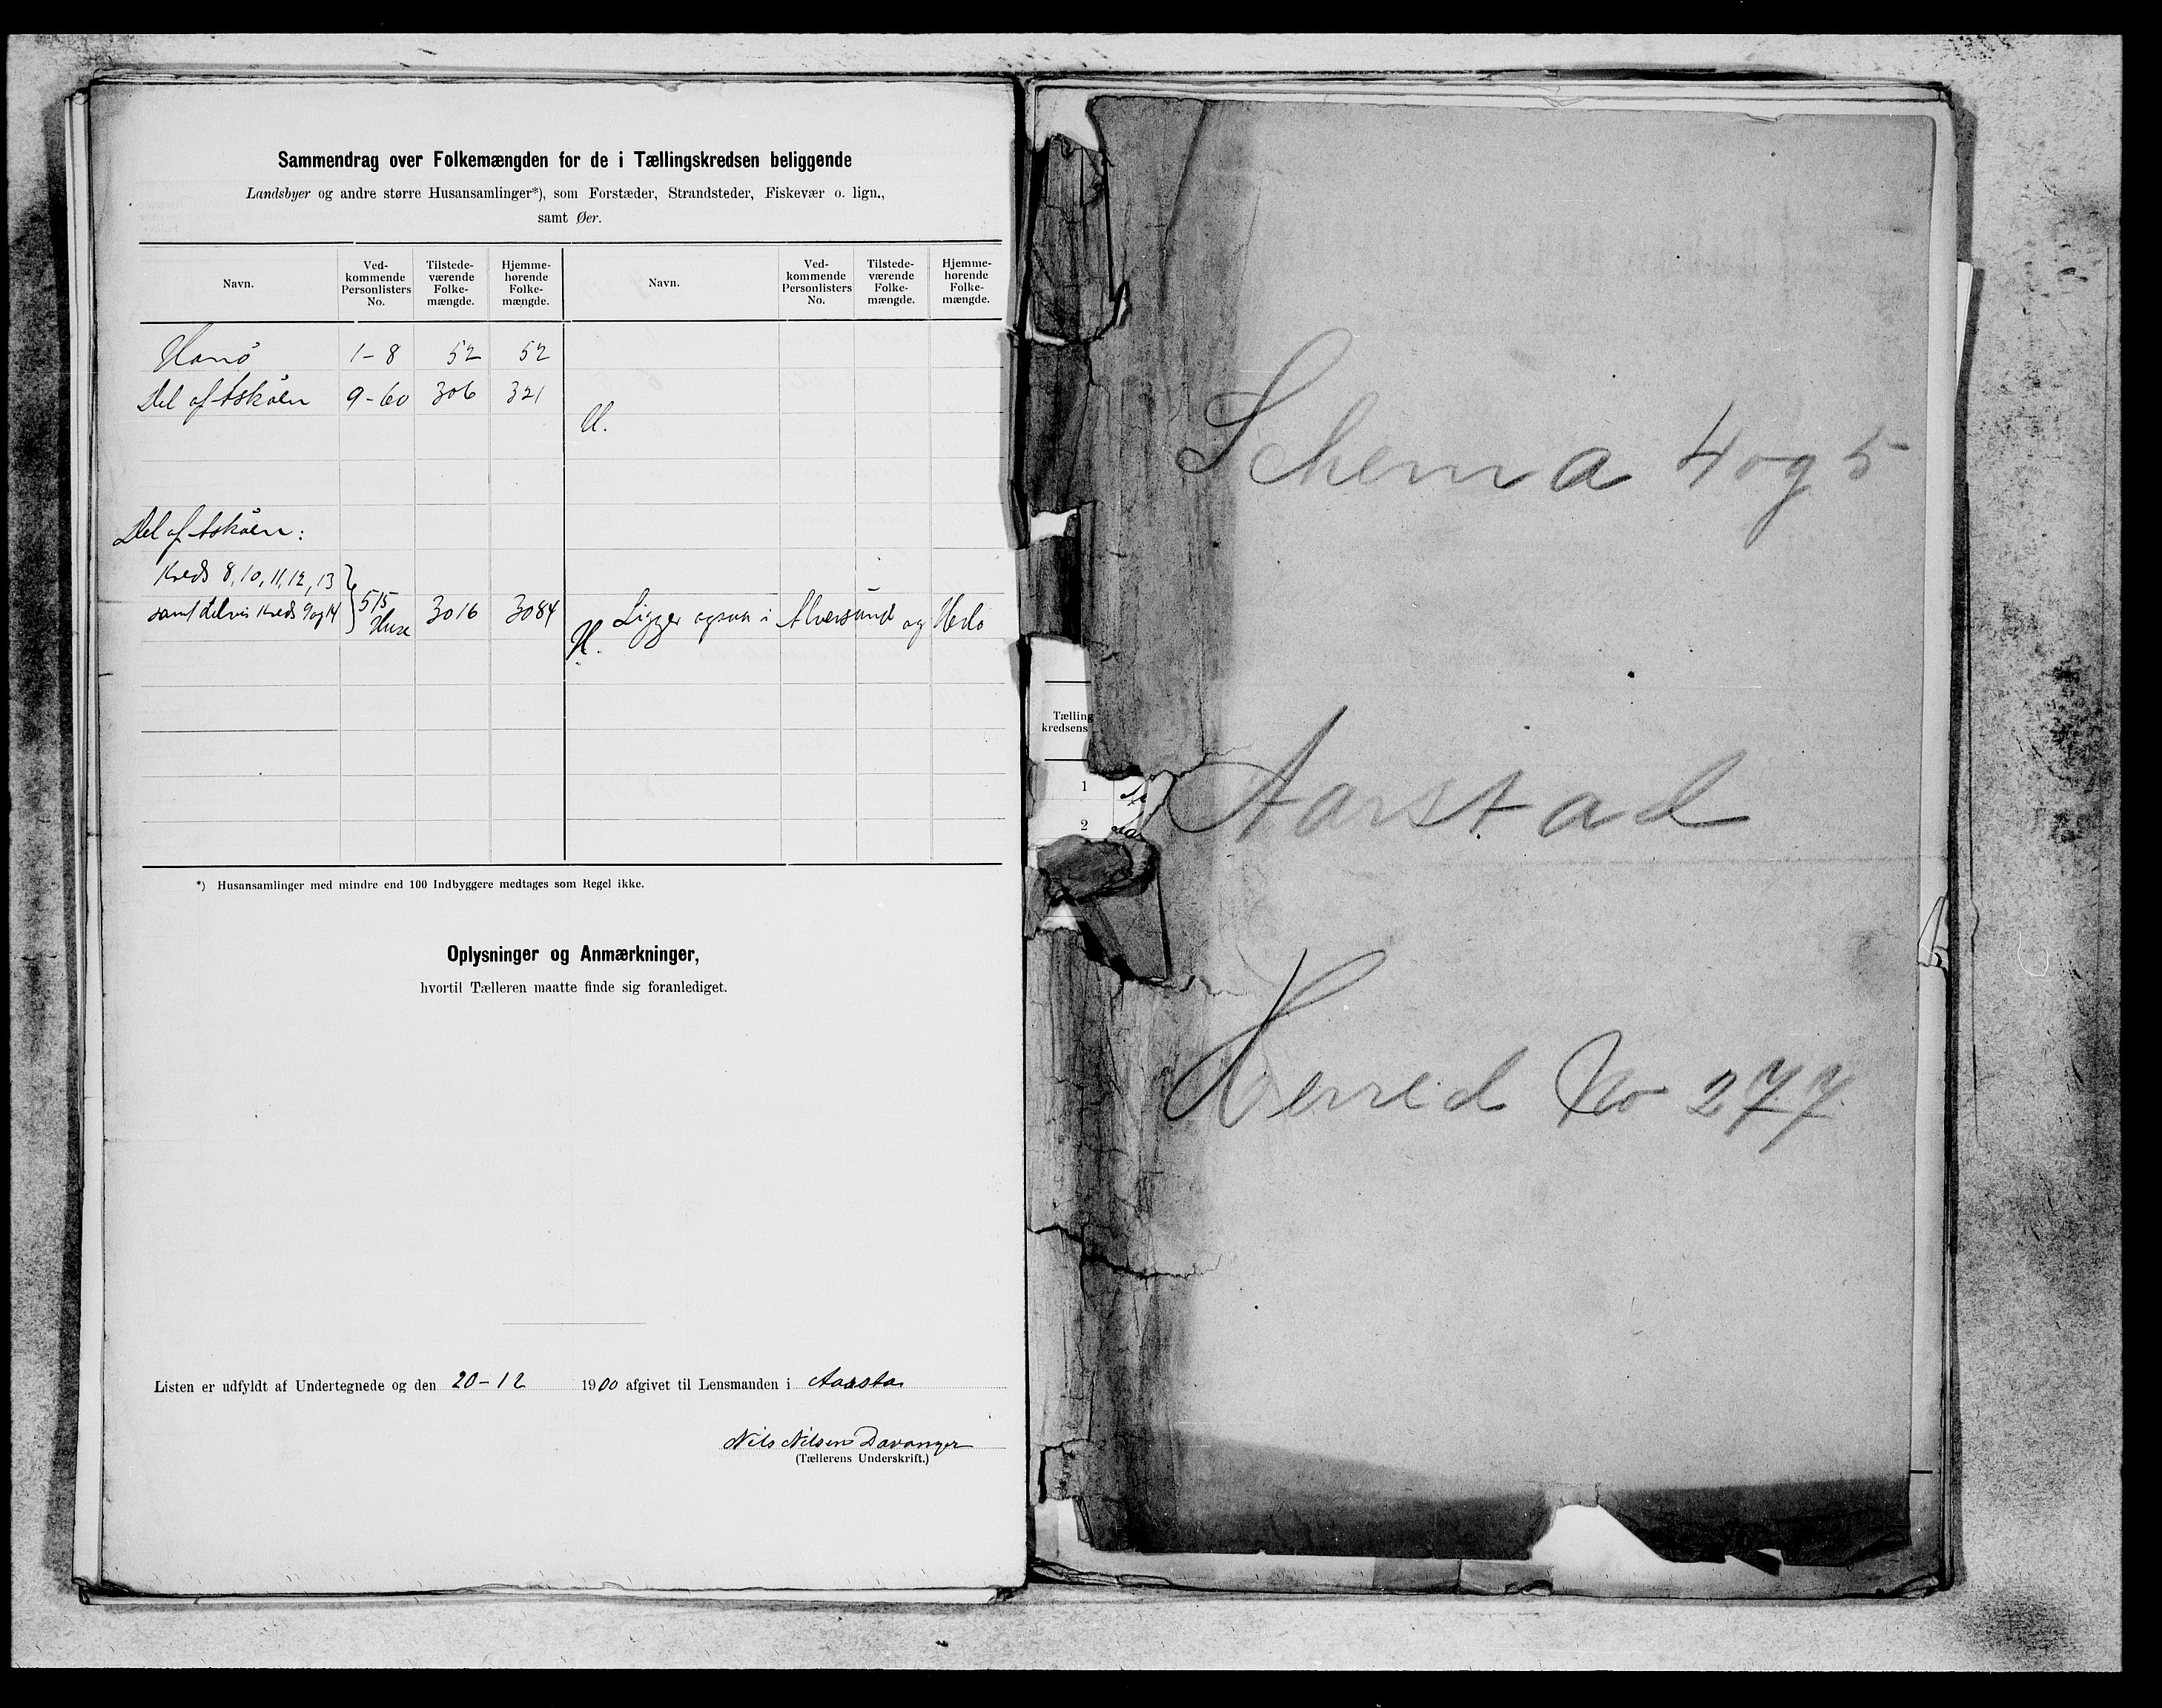 Sammendrag over Folkemængden for de i Tællingskredsen beliggende
Landsbyer og andre større Husansamlinger*), som Forstæder, Strandsteder, Fiskevær o. lign.,
samt Øer.
Navn. Ved-kommende Personlisters No. Tilstede-værende Folke-mængde. Hjemme-hørende Folke-mængde. Navn. Ved-kommende Personlisters No. Tilstede-værende Folke-mængde. Hjemme-hørende Folke-mængde.
Hanö 1-8 52 52
Del af Askøen 9-60 306 321
U.
Del af Askøen:
Kreds 8, 10, 11, 12, 13
samt delvis Kreds 9 og 14 515 Huse 3016 3084 Ligger ogsaa i Alversund og Herlø
*) Husansamlinger med mindre end 100 Indbyggere medtages som Regel ikke.
Oplysninger og Anmærkninger,
hvortil Tælleren maatte finde sig foranlediget.
Listen er udfyldt af Undertegnede og den 20-12 1900 afgivet til Lensmanden i
Nils Nilsen Davanger
(Tællerens Underskrift.)
Schema 4 og 5
Tælling
kredsens
1
2
Aarstad
Herred No 277